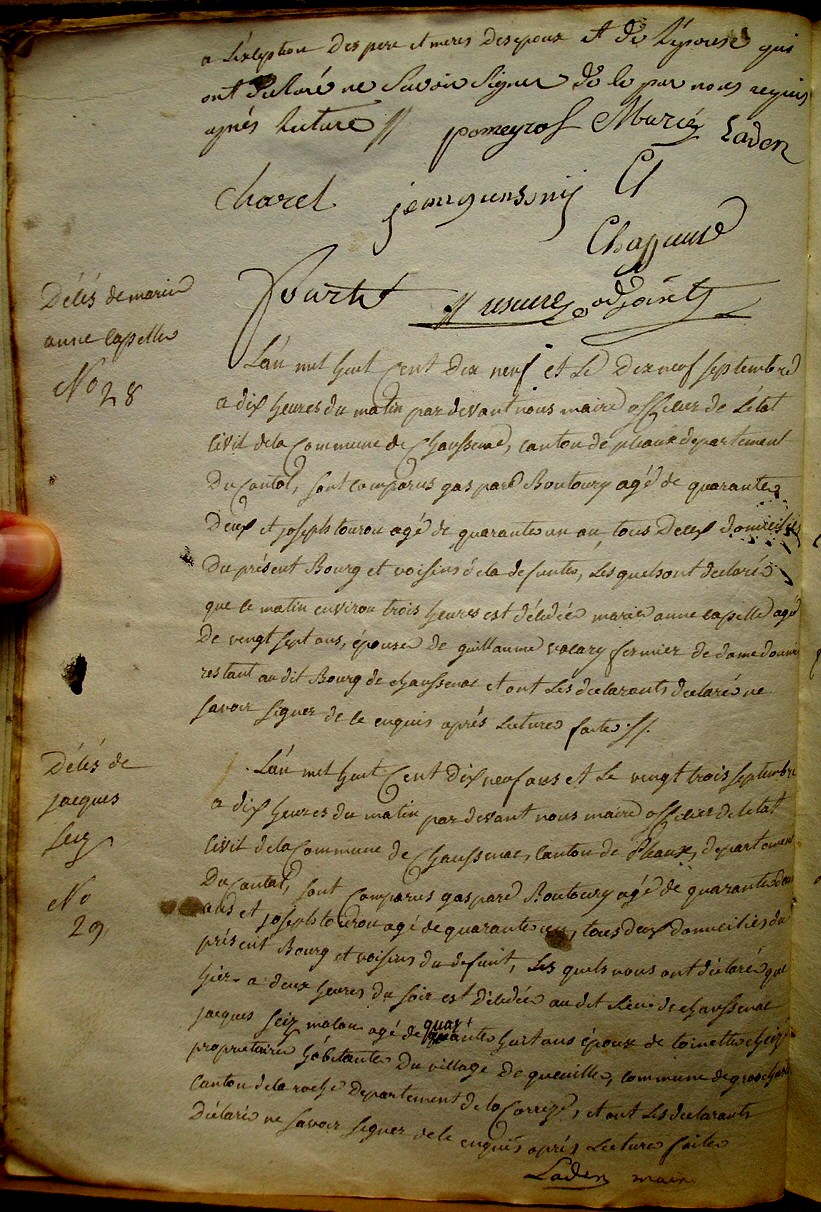 a l'exseption des pere et meres des epoux et de l'epouse qui
ont declaré ne savoir signer de le par nous requis
après lecture //
pomeyrol Marié Laden
Charel
Chappuie
adjoint
Délés de marie
anne Capelle
No 28
L'an mil huit cent dix neuf et Le dix neuf septembre
a dix heures du matin par devant nous maire officier de L'état
civil de la Commune de Chaussenac, canton de pleaux departement
Du Cantal, sont comparus gaspard Boutoury agé de quarante
Deux et joseph tourou agé de quarante un an, tous Deux domiciliés
Du présent Bourg et voisins de la defunte, Les quels ont declaré
que ce matin environ trois heures est délédée marie anne Capelle agé
De vingt sept ans, épouse de guillaume valary fermier de dame
restant au dit Bourg de chaussenac et ont Les declarants declaré ne
savoir signer de ce enquis après Lecture faite //.
Délés de
jacques
seiz
No
29
L'an mil huit Cent Dix neuf ans et Le vingt trois septembre
a dix heures du matin par devant nous maire officier de letat
civil de la Commune de Chaussenac, canton de Pleaux, departement
Du Cantal, sont comparus gaspard Boutoury agé de quarante deux
ans et joseph tourou agé de quarante un, tous deux domiciliés du
présent Bourg et voisins du defunt, Les quels nous ont déclaré que
hier a deux heures du soir est délédée au dit Lieu de chaussenac
jacques seiz maçon agé de quarante huit ans épouse de toinette
proprietaire habitante Du village De queuille, commune de
canton de la roche Departement de la Correze, et ont Les declarants
Déclaré ne savoir signer de le enquis après Lecture faite
Laden maire